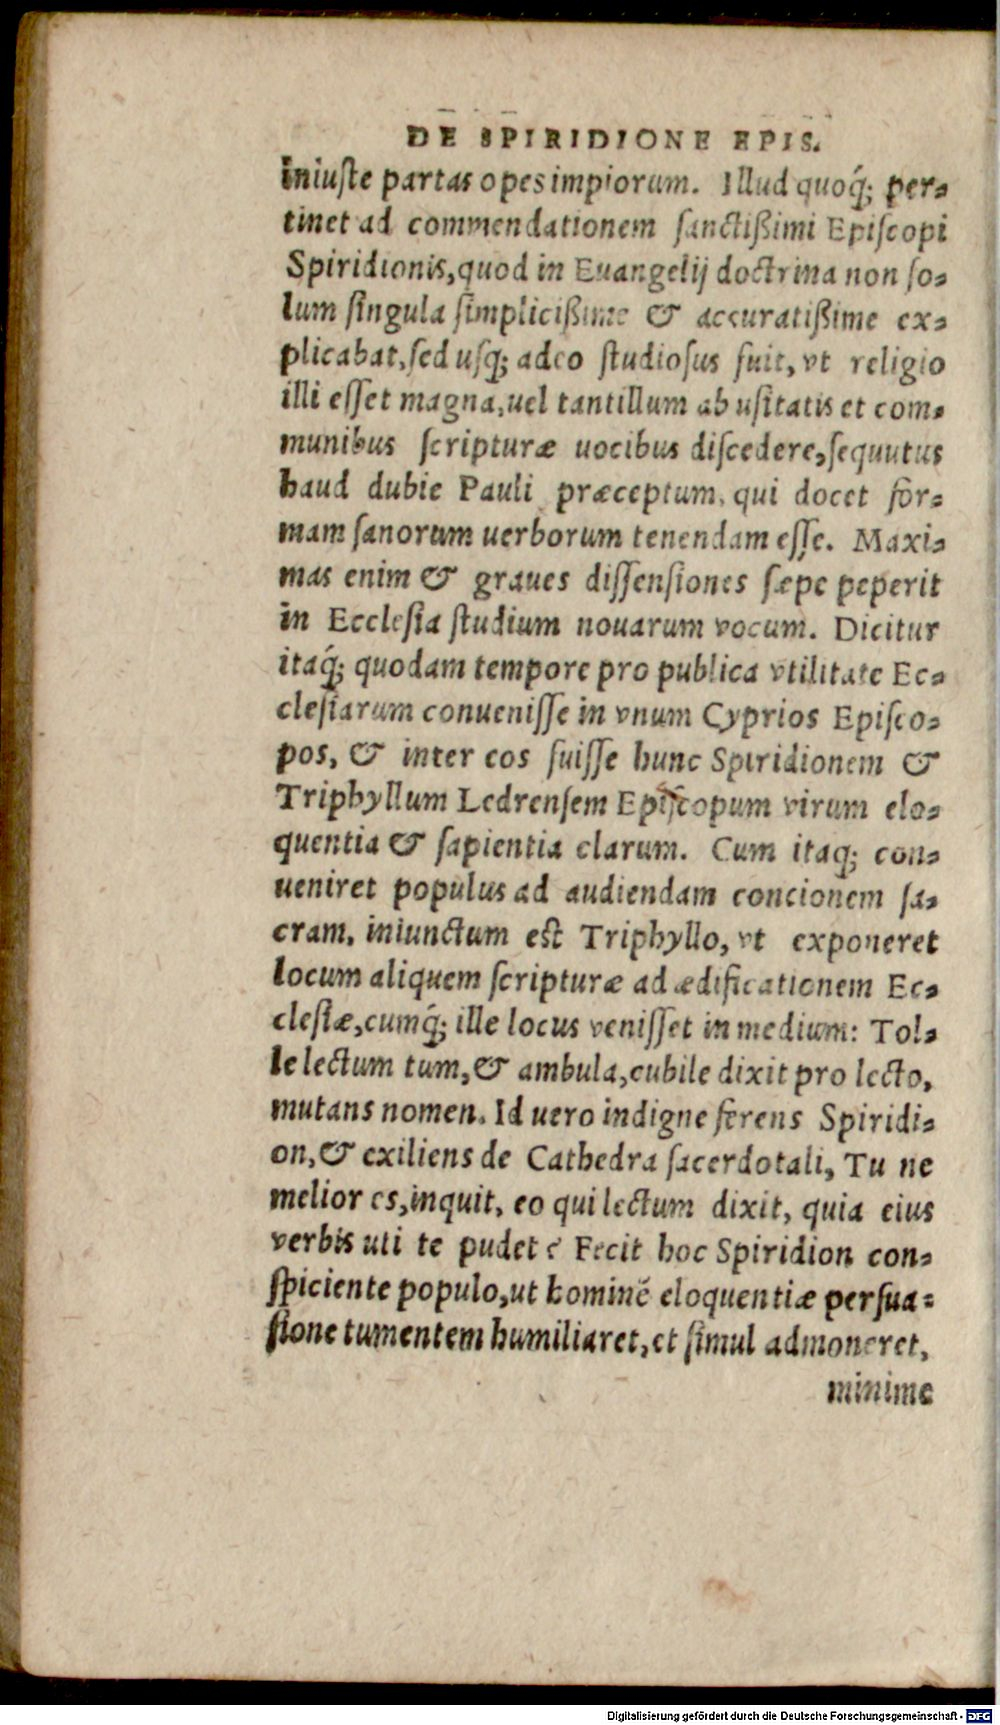 DE SPIRIDIONE EPIS.
iniuste partas opes impiorum. Illud quoq́; per-
tinet ad commendationem sanctißimi Episcopi
Spiridionis, quod in Euangelij doctrina non so-
lum singula simplicißime & accuratißime ex-
plicabat, sed usq; adeo studiosus fuit, vt religio
illi esset magna, uel tantillum ab usitatis et com-
munibus scripturæ uocibus discedere, sequutus
haud dubie Pauli præceptum, qui docet for-
mam sanorum uerborum tenendam esse. Maxi-
mas enim & graues dissensiones sæpe peperit
in Ecclesia studium nouarum vocum. Dicitur
itaq́; quodam tempore pro publica vtilitate Ec-
clesiarum conuenisse in vnum Cyprios Episco-
pos, & inter eos fuisse hunc Spiridionem &
Triphyllum Ledrensem Episcopum virum elo-
quentia & sapientia clarum. Cum itaq; con-
ueniret populus ad audiendam concionem sa-
cram, iniunctum est Triphyllo, vt exponeret
locum aliquem scripturæ ad ædificationem Ec-
clesiæ, cumq́; ille locus venisset in medium: Tol-
le lectum tum, & ambula, cubile dixit pro lecto,
mutans nomen. Id uero indigne ferens Spiridi-
on, & exiliens de Cathedra sacerdotali, Tu ne
melior es, inquit, eo qui lectum dixit, quia eius
verbis uti te pudet? Fecit hoc Spiridion con-
spiciente populo, ut hominē eloquentiæ persua-
sione tumentem humiliaret, et simul admoneret,
minime
Digitalisierung gefördert durch die Deutsche Forschungsgemeinschaft - DFG